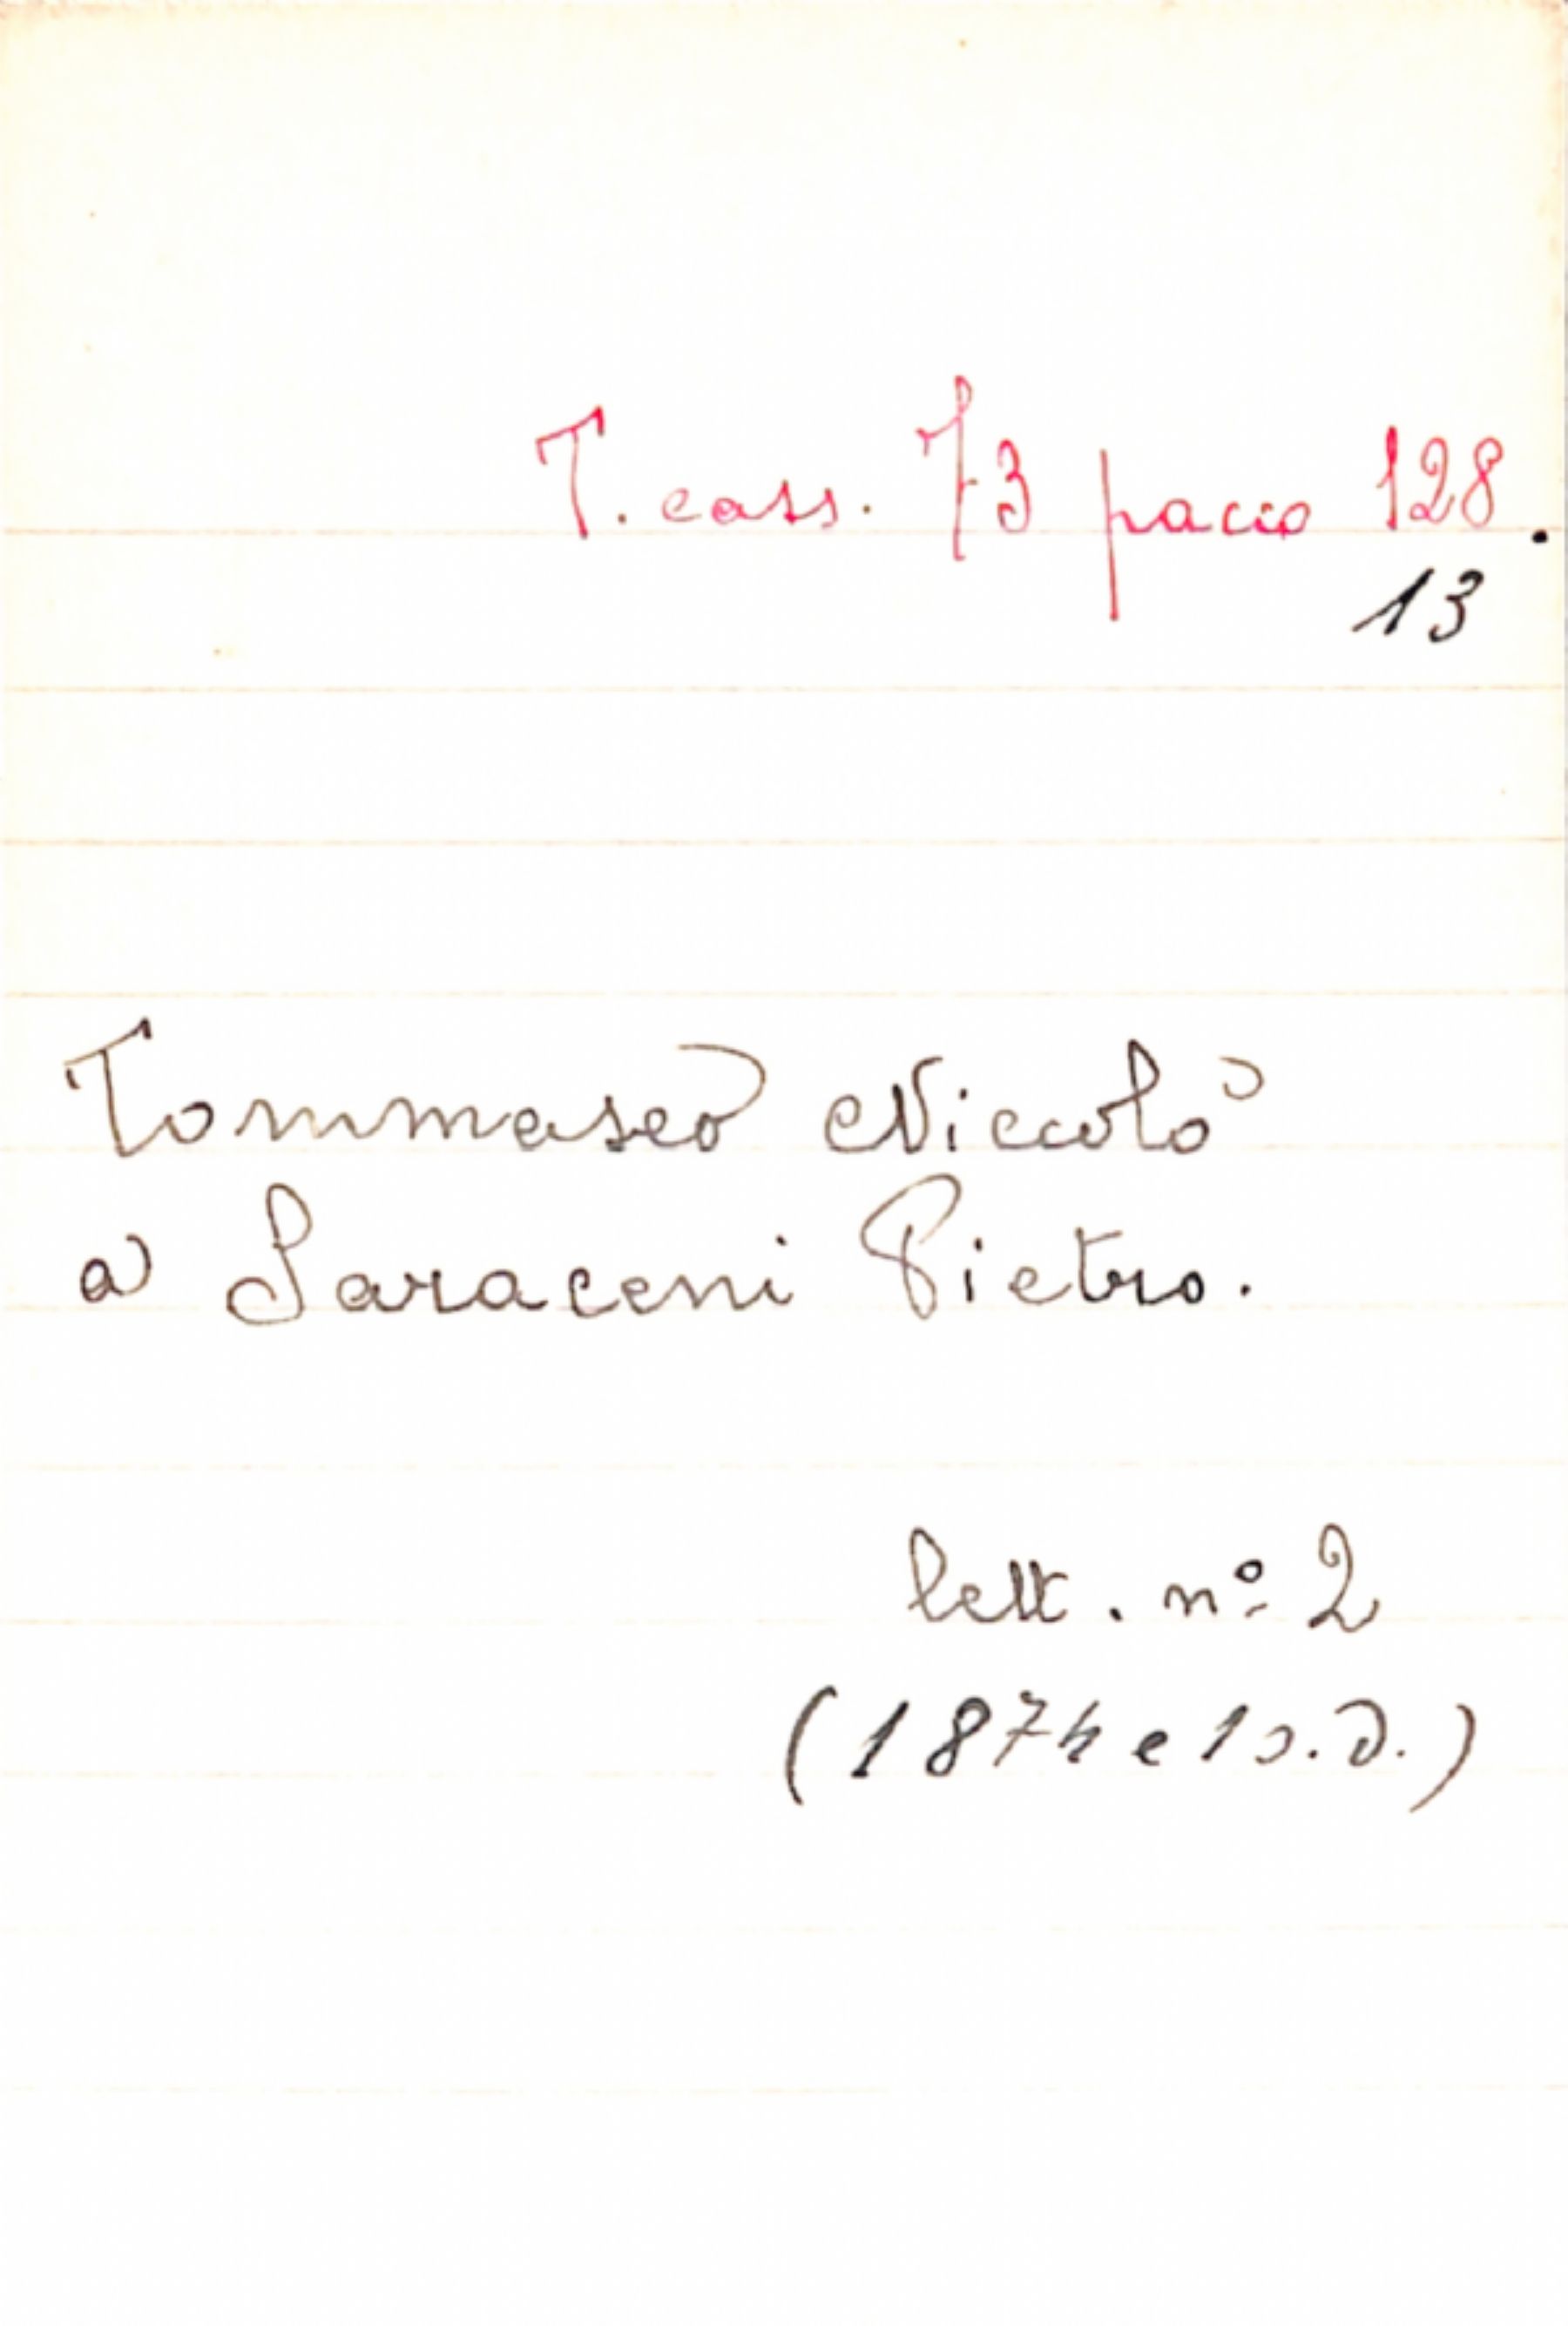 T. cass. 73 pacco 128.
13
Tommaseo Niccolò
a Saraceni Pietro.
lett. nº 2
(1874 e 1 s.d.)